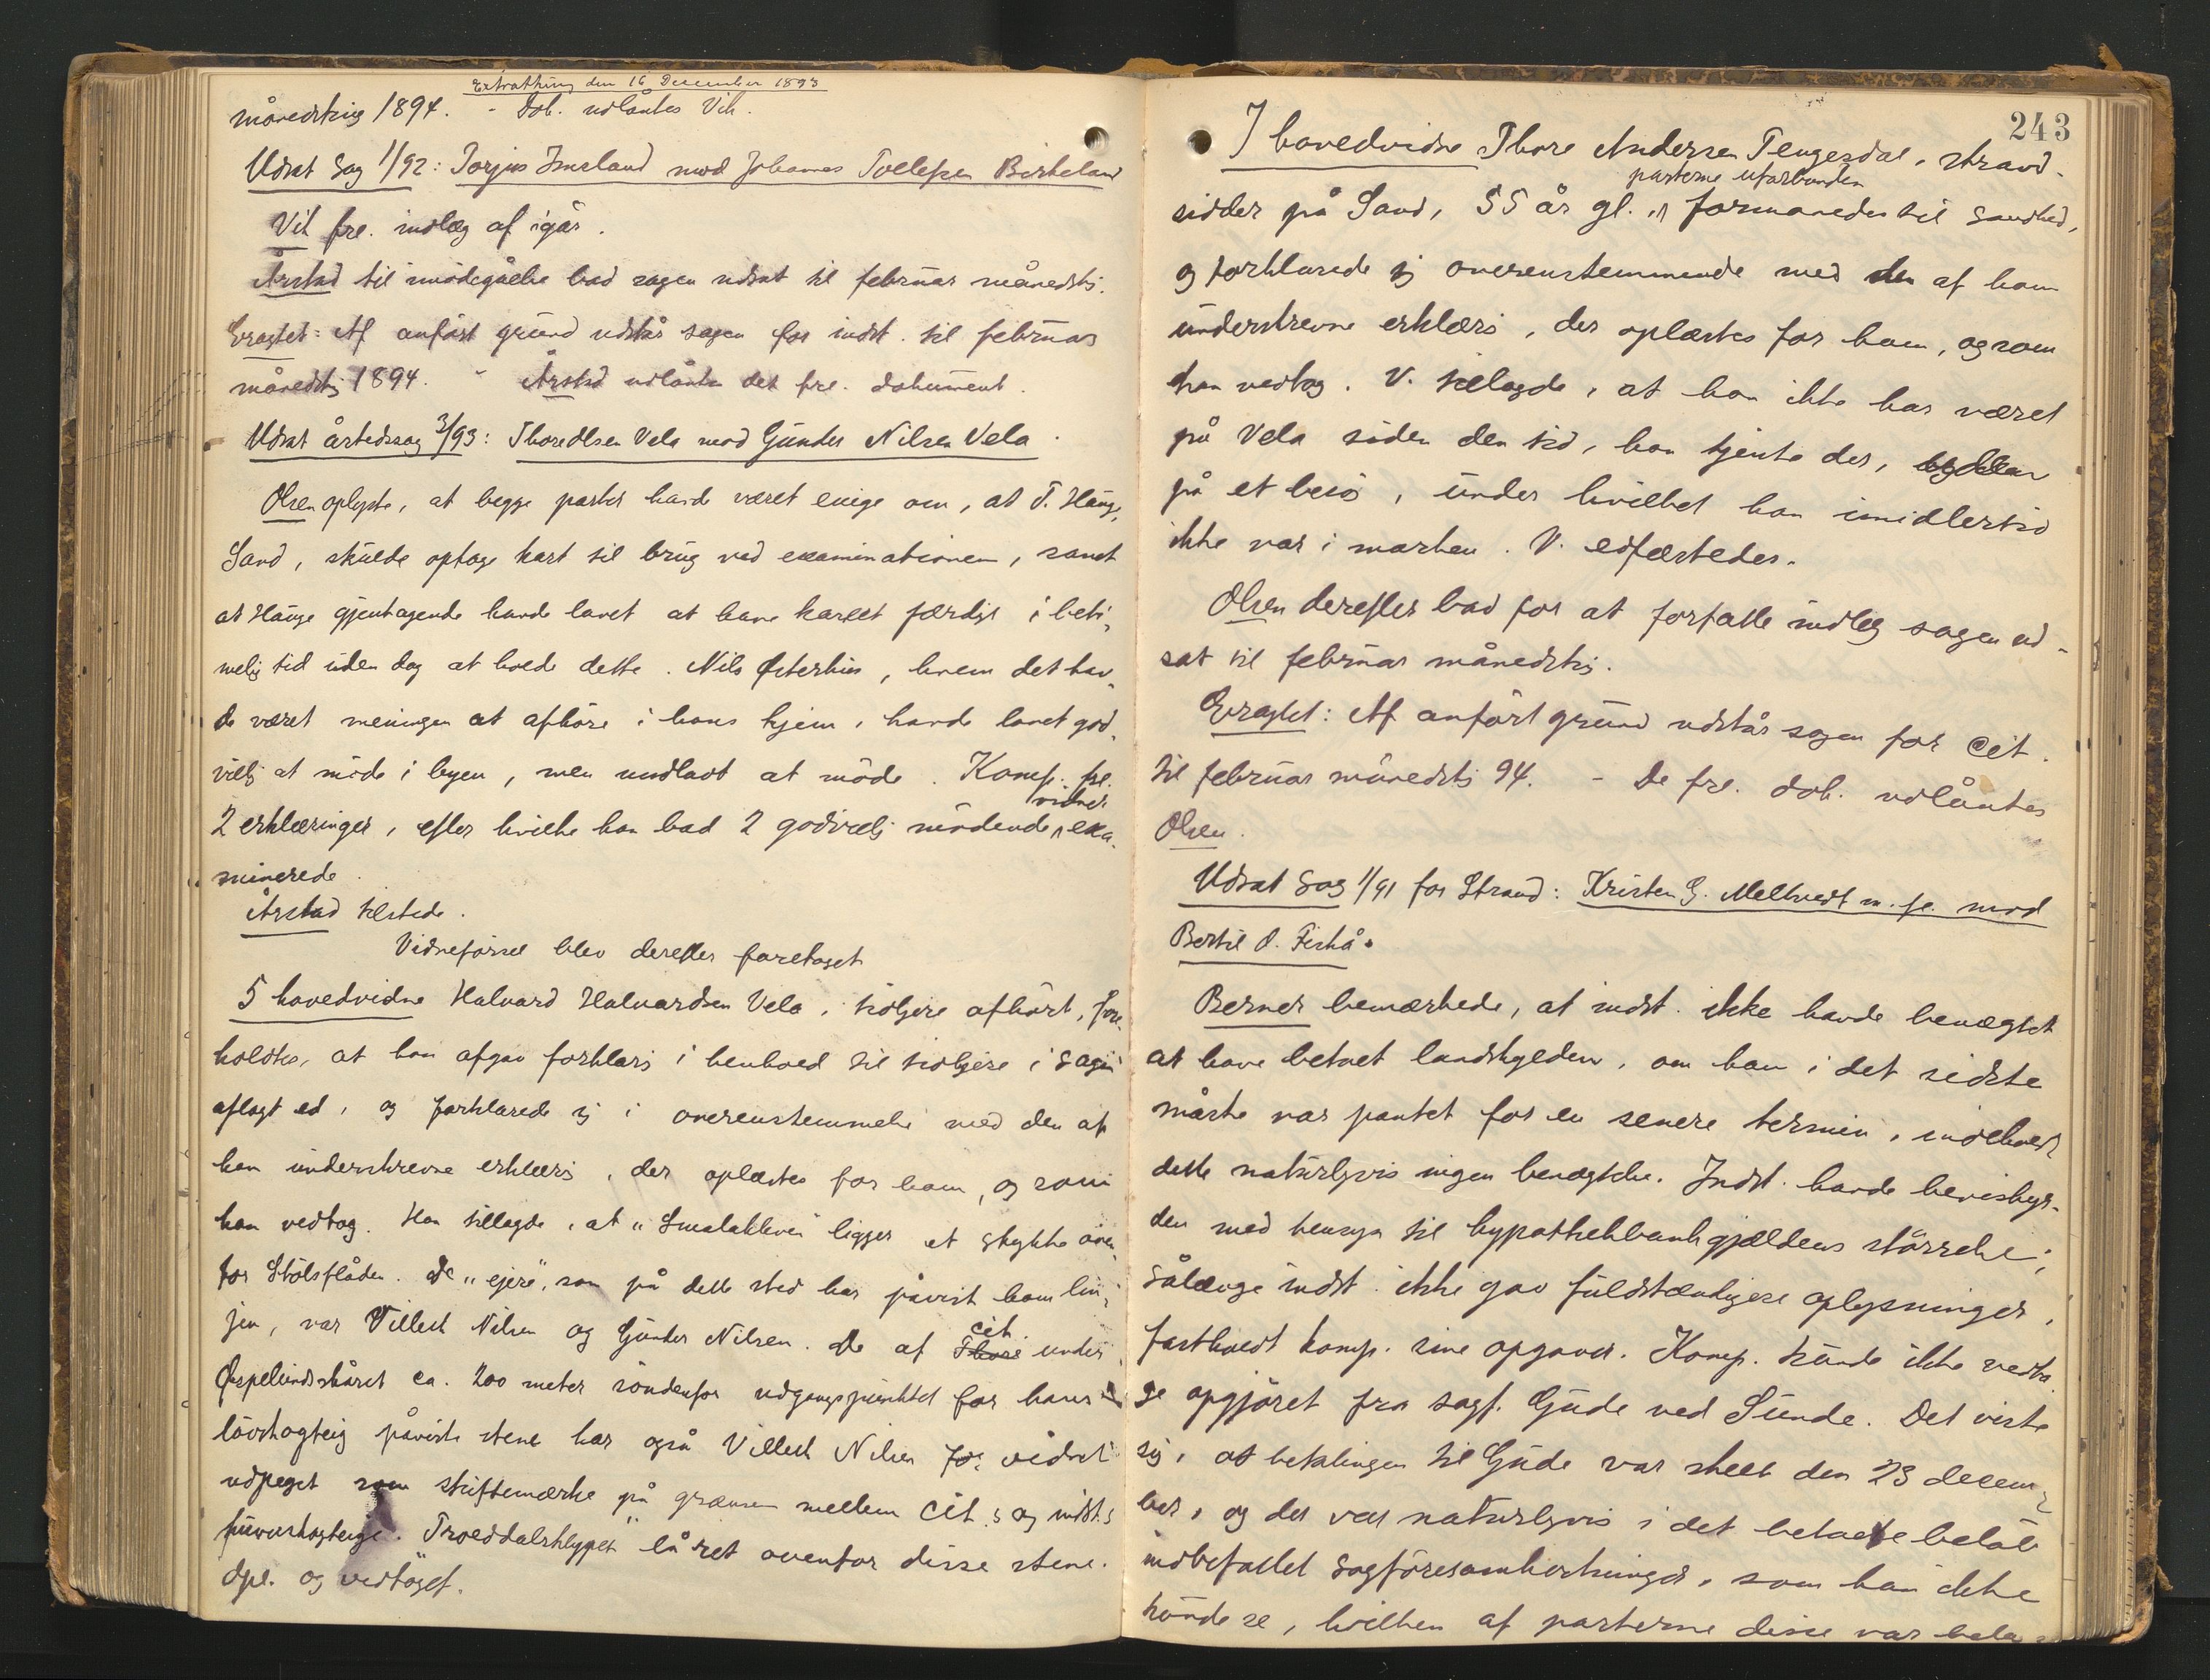 Extrathing den 16 December 1893
månedsting 1894. - Dok. udlåntes Vik.
Udsat Sag 1/92: Torjus Imsland mod Johannes Tollefsen Birkeland
Vik fre. indlæg af igår.
Årstad til imødegåelse bad sagen udsat til februar månedstg.
Eragtet: Af anført grund udstår sagen for indst. til februar
månedstg 1894. - Årstad udlånte det fre. dokument.
Udsat åstedssag 3/93: Thore Olsen Vela mod Gunder Nilsen Vela.
Olsen oplyste, at begge parter havde været enige om, at T. Hauge,
Sand, skulde optage kart til brug ved examinationen, samt
at Hauge gjentagende havde lovet at have kartet færdigt i beti-
melig tid uden dog at holde dette. Nils Østerhus, hvem det hav-
de været meningen at afhøre i hans hjem, havde lovet god-
villig at møde i byen, men undladt at møde. Komp. fre.
2 erklæringer, efter hvilke han bad 2 godvillig mødende vidner exa-
minerede.
Årstad tilstede.
Vidneførsel blev derefter foretaget
5 hovedvidne Halvard Halvardsen Vela, tidligere afhørt, fore-
holdtes, at han afgav forklarg i henhold til tidligere i sagen
aflagt ed, og forklarede sig i overensstemmelse med den af
ham underskrevne erklærg, der oplæstes for ham, og som
han vedtog. Han tillagde, at "Smalakleven" ligger et stykke oven-
for Stølsflåden. De "ejere", som på dette sted har påvist ham lin-
jen, var Villech Nilsen og Gunder Nilsen. De af Thore cit. under
Øspelundsskåret ca. 200 meter søndenfor udgangspunktet for hans
løvhogteig påviste stene har også Villech Nilsen for vidnet
udpeget som skiftemærke på grænsen mellem cit.s og indst.s
furuskogteige. "Troeddalsklypet" lå ret ovenfor disse stene.
Opl. og vedtaget.
243
7 hovedvidne Thore Andersen Tengesdal, strand-
sidder på Sand, 55 år gl., parterne uforbunden formanedes til sandhed,
og forklarede sig overensstemmende med den af ham
underskrevne erklærg, der oplæstes for ham, og som
han vedtog. V. tillagde, at han ikke har været
på Vela siden den tid, han tjente der,
på et besøg, under hvilket han imidlertid
ikke var i marken. V. edfæstedes.
Olsen derefter bad for at forfatte indlæg sagen ud-
sat til februar månedstg.
Eragtet: Af anført grund udstår sagen for cit.
til februar månedstg 94. - De fre. dok. udlåntes
Olsen.
Udsat Sag 1/91 for Strand: Kristen G. Meltvedt m. fl. mod
Bertil O. Fiskå.
Berner bemærkede, at indst. ikke havde benægtet
at have betalt landskylden, om han i det sidste
måske var pantet for en senere termin, indeholdt
dette naturligvis ingen benægtelse. Indst. havde bevisbyr-
den med hensyn til hypothekbankgjældens størrelse;
sålænge indst. ikke gav fuldstændigere oplysninger,
fastholdt komp. sine opgaver. Komp. kunde ikke vedta-
ge opgjøret fra sagf. Gude ved Sunde. Det viste
sig, at betalingen til Gude var skeet den 23 decem-
ber, og der var naturligvis i det betalte beløb
indbefattet sagføreromkostninger, som han ikke
kunde se, hvilken af parterne disse var bela-